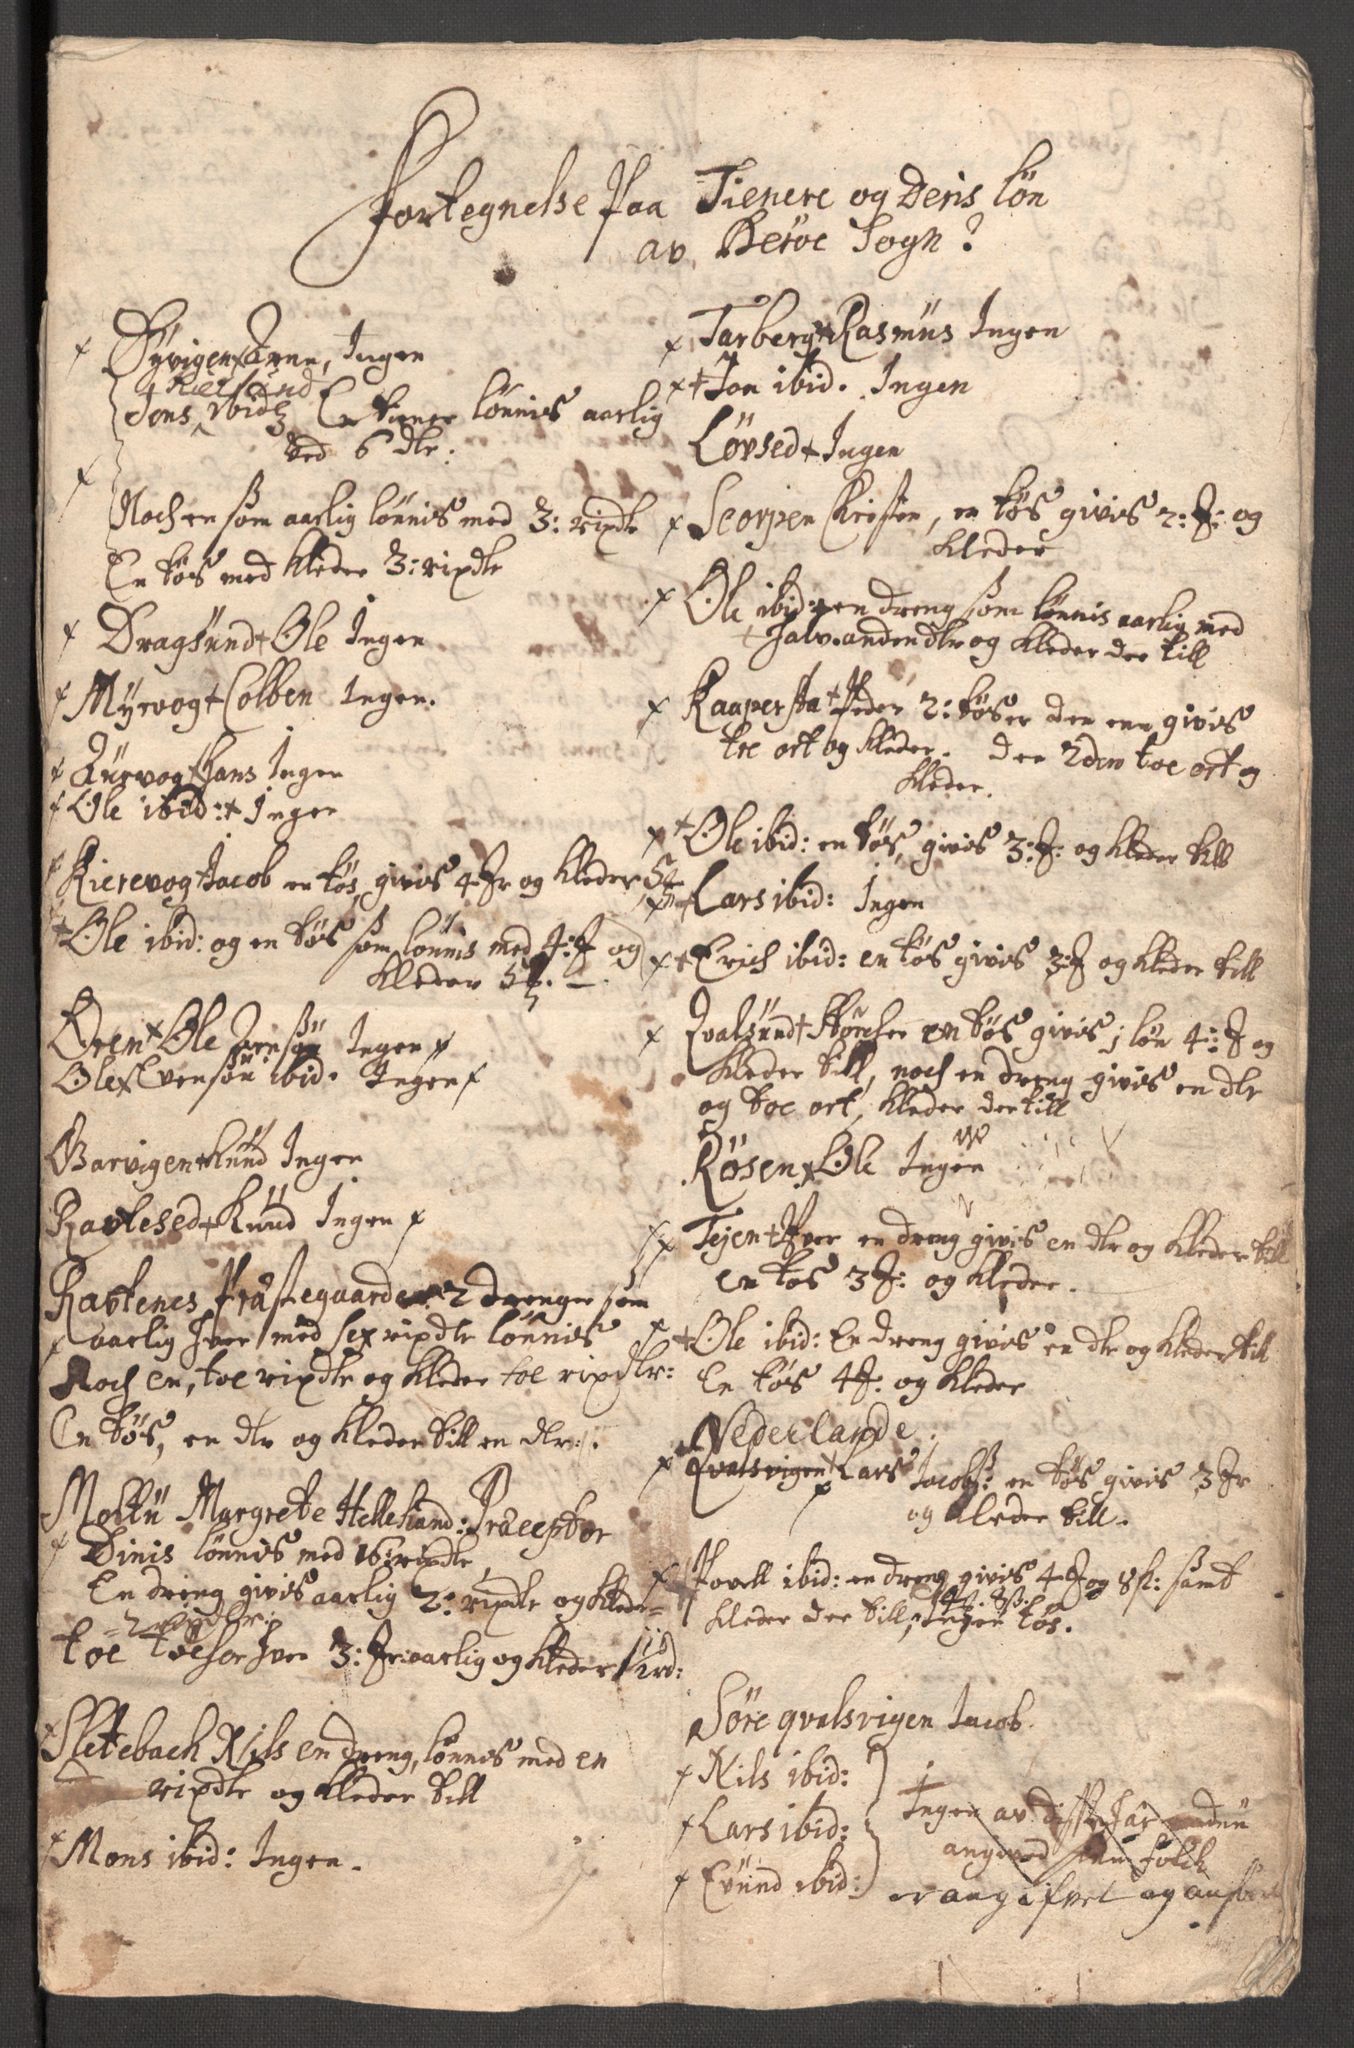 Fortegnelse Paa Tienere og Deris løn
av Herøe Sogn?
Dyvigen Arne, Ingen
Kielsund
Jens ibid En tiener lønnis aarlig
ved 6 dlr:
Noch en som aarlig lønnis med 3: rixdlr
En tøs med kleder 3: rixdlr
Dragsund Ole Ingen
Myrvog Colben Ingen.
Qürvog Hans Ingen
Ole ibid: Ingen
Kierevog Jacob en tøs givis 4 Jr og kleder
Ole ibid: og en tøs som lønnis med 4: J og
kleder
Øren Ole Ingen
Ole Evensøn ibid. Ingen
Barvigen Knud Ingen
Ravtesed Knud Ingen
Ravtenes Præstegaard 2 drenger som
aarlig hver med sex rixdlr lønnis
Noch en, toe rixdlr og kleder toe rixdlr:
En tøs, en dlr og kleder till en dlr.
Moltu Margrete Hellekand: Præceptor
Dinis lønnis med 16 rixdlr
En dreng givis aarlig 2: rixdlr og kleder
2 rixdlr:
toe tøeser hver 3: Jr: aarlig og kleder
Sletebach Nils en dreng, lønnes med en
rixdlr og kleder till
Mons ibid: Ingen.
Tarberg Rasmus Ingen
Jon ibid. Ingen
Løvsed Ingen
Scorpen Kristen, en tøs givis 2: J: og
kleder
Ole ibid: en dreng som lønnis aarlig med
halv anden dlr og kleder der till
Raaper Peder 2: tøser den ene givis
tre ort og kleder. den 2den toe ort og
kleder.
Ole ibid: en tøs givis 3: J: og kleder till
Lars ibid: Ingen
Erich ibid: en tøs givis 3: J og kleder till
Qvalsund Størcher en tøs givis i løn 4: J og
kleder till, noch en dreng givis en dlr
og toe ort, kleder dertill
Røsen Ole Ingen
Tejen Iver en dreng givis en dlr og kleder till
en tøs 3 J: og kleder.
Ole ibid: En dreng givis en dlr og kleder till
En tøs 4 J. og kleder
Nederlande.
Qvalsvigen Lars Jacobs: en tøs givis 3 Jr
og kleder till.
Povell ibid: en dreng givis 4 J og 8 s: samt
kleder der till, Ingen tøs.
Søre qvalsvigen Jacob.
Nils ibid:
Lars ibid:
Evünd ibid:
Ingen av disse har endnu
angived folck
er angifvet og